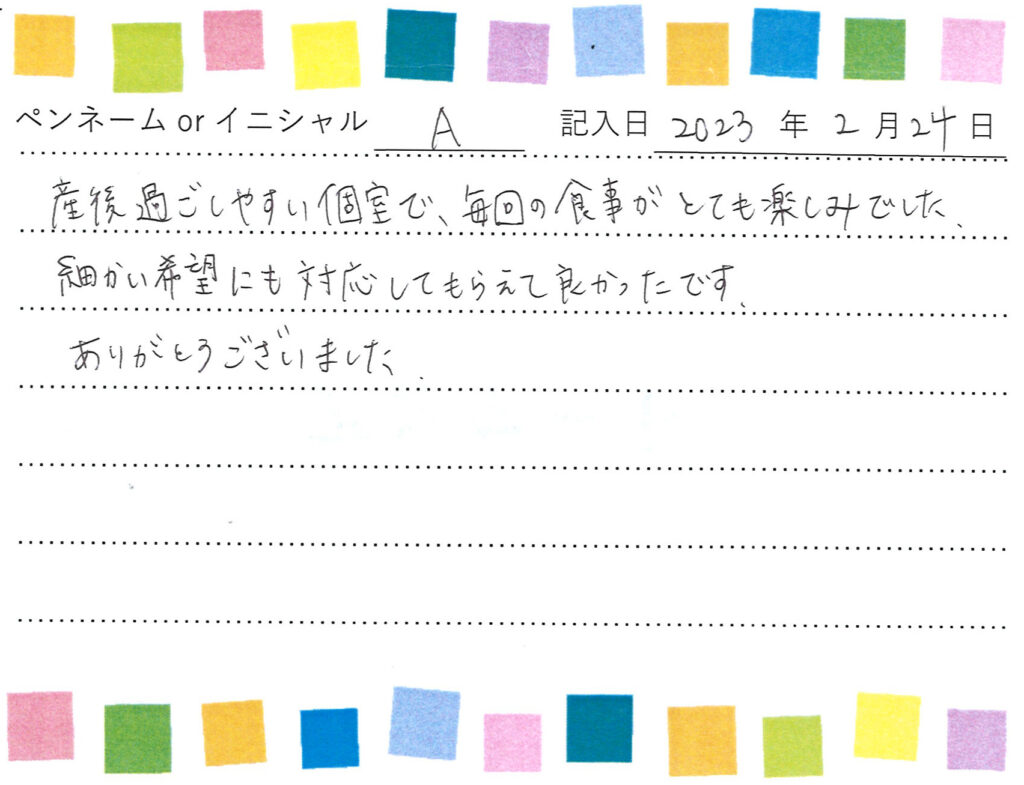 ペンネーム or イニシャル A 記入日 2023 年 2 月 24 日
産後過ごしやすい個室で、毎回の食事がとても楽しみでした。
細かい希望にも対応してもらえて良かったです。
ありがとうございました。